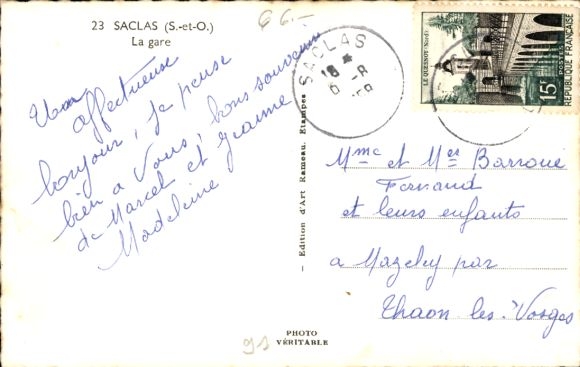 23 SACLAS (S.-et-O.)
La gare
66.-
Un
affectueux
bonjour, je pense
bien a Vous, bons souvenirs
de Marcel et
Madeleine
— Edition d'Art Rameau, Etampes
PHOTO
VÉRITABLE
91
SACLAS
18 *
6 -8
LE QUESNOY (Nord)
15F
POSTES
REPUBLIQUE FRANÇAISE
Mme et Mer Barroue
Fernand
et leurs enfants
a Mazeley par
Thaon les-Vosges